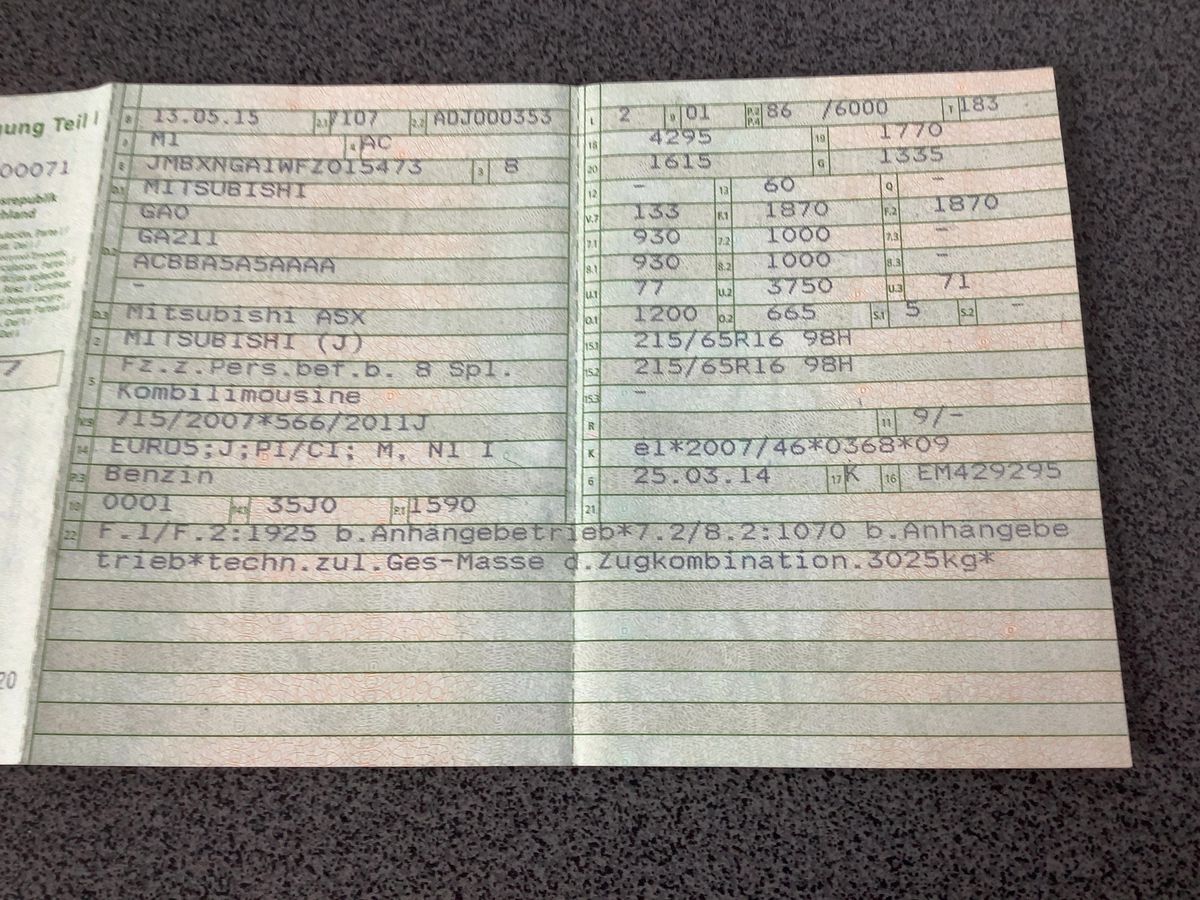 ung Teil I
00071
srepublik
hland
7
20
B 13.05.15 2.1 7107 2.2 ADJ000353
J M1 4 AC
E JMBXNGA1WFZ015473 3 8
D.1 MITSUBISHI
D.2 GA0
GA211
ACBBA5A5AAAA
-
D.3 Mitsubishi ASX
2 MITSUBISHI (J)
5 Fz.z.Pers.bef.b. 8 Spl.
Kombilimousine
V.9 715/2007*566/2011J
14 EURO5;J;PI/CI; M, N1 I
P.3 Benzin
10 0001 14.1 35J0 P.1 1590
L 2 9 01 P.2 P.4 86 /6000 T 183
18 4295 19 1770
20 1615 G 1335
12 - 13 60 Q -
V.7 133 F.1 1870 F.2 1870
7.1 930 7.2 1000 7.3 -
8.1 930 8.2 1000 8.3 -
U.1 77 U.2 3750 U.3 71
O.1 1200 O.2 665 S.1 5 S.2 -
15.1 215/65R16 98H
15.2 215/65R16 98H
15.3 -
R 11 9/-
K e1*2007/46*0368*09
6 25.03.14 17 K 16 EM429295
21
22 F.1/F.2:1925 b.Anhängebetrieb*7.2/8.2:1070 b.Anhängebe
trieb*techn.zul.Ges-Masse d.Zugkombination.3025kg*